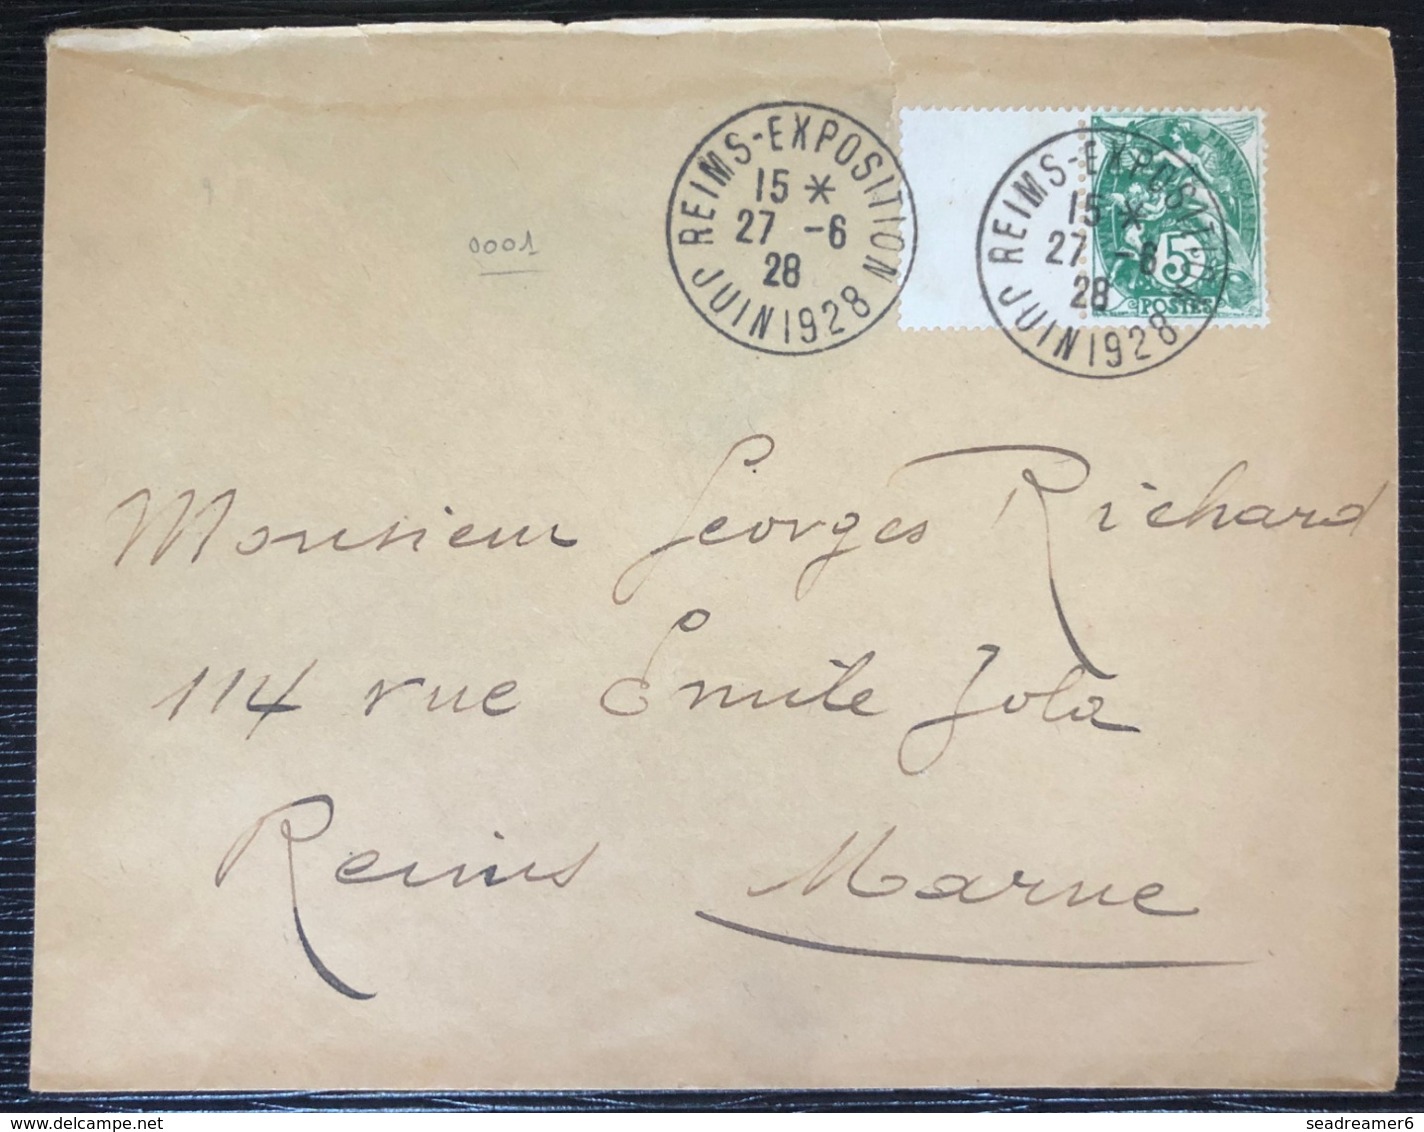 REIMS-EXPOSITION
15 *
27 -6
28
JUIN 1928
REIMS-EXPOSITION
15 *
27 -6
28
JUIN 1928
5
POSTES
0001
Monsieur Georges Richard
114 rue Emile Zola
Reims Marne
www.delcampe.net
seadreamer6